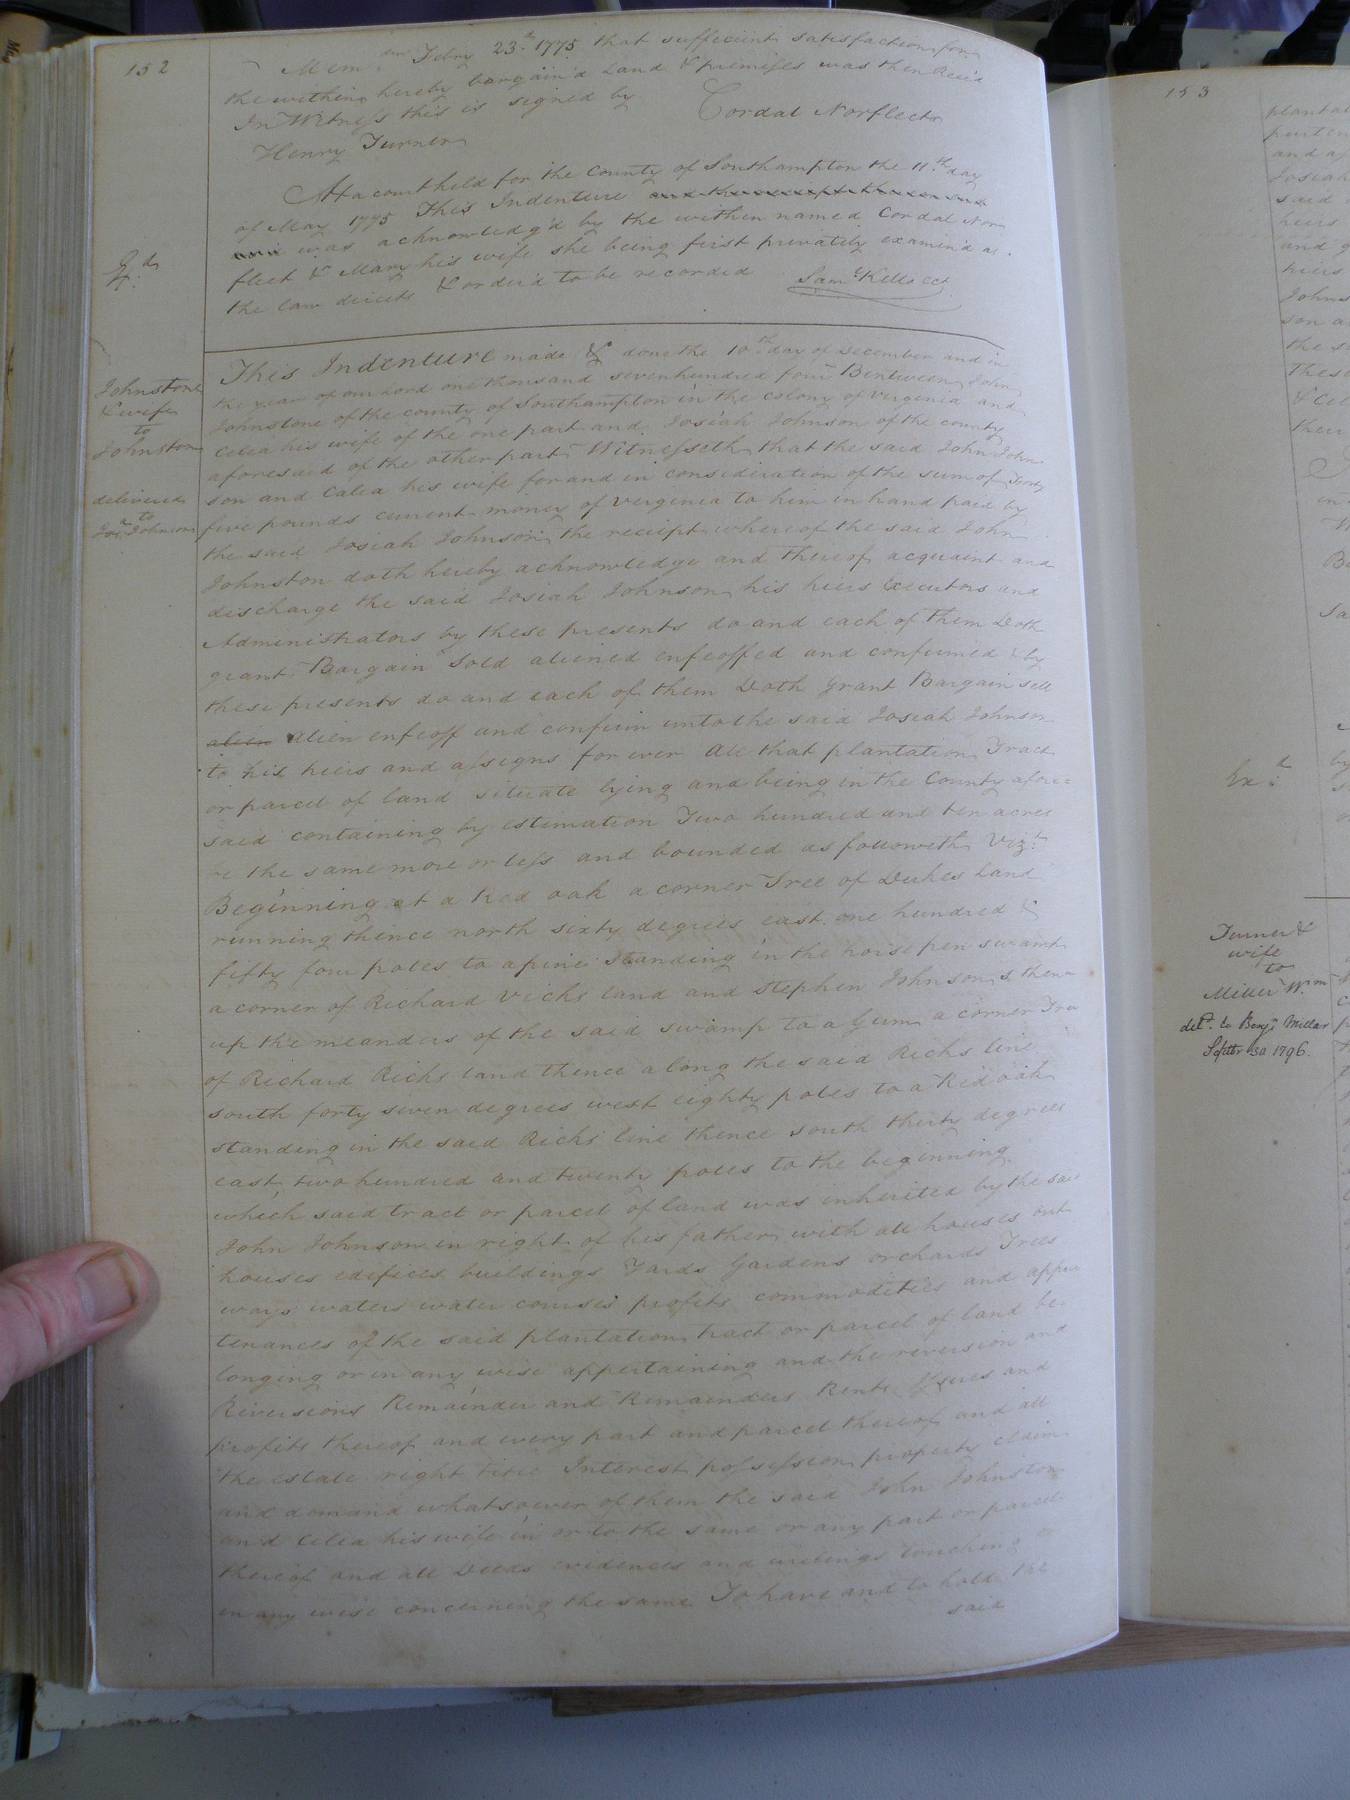 152
Mem.dm Febry 23.d 1775 that suffecient satisfaction for
the withing hereby bargain'd Land & premises was then Recev'd
In Witness this is signed by Cordal Norfleet
Henry Turner
At a court held for the County of Southampton the 11.th day
of May 1775 This Indenture
was acknowledg'd by the within named Cordal Nor
fleet & Mary his wife she being first privately examin'd as
the law directs & order'd to be recorded Sam.l Kello cct
Johnstone
& wife
to
Johnston
delivered
to
Jos.h Johnson
This Indenture made & done the 10.th day of December and in
the year of our Lord one thousand sevenhundred four Bentween John
Johnstone of the county of Southampton in the colony of Virginia and
Celia his wife of the one part and Josiah Johnson of the county
aforesaid of the other part Witnesseth that the said John John
son and Calea his wife for and in consideration of the sum of
five pounds current money of Verginea to him in hand paid by
the said Josiah Johnson the receipt whereof the said John
Johnston doth hereby acknowledge and thereof acquaint and
discharge the said Josiah Johnson his hiers Executors and
Administrators by these presents do and each of them Doth
grant Bargain Sold aliened enfeoffed and confirmed & by
these presents do and each of them Doth Grant Bargain sell
alien alien enfeoff and confirm unto the said Josiah Johnson
to his hiers and assigns for ever All that plantation Tract
or parcel of land situate lying and being in the County afore=
said containing by estimation Two hundred and ten acres
re the same more or less and bounded as followeth Viz.t
Beginning at a Red oak a corner Tree of Dukes Land
running thence north sixty degrees east one hundred &
fifty four poles to a pine Standing in the horse pen swamp
a corner of Richard Vicks land and Stephen Johnsons thence
up the meanders of the said swamp to a Gum a corner Tree
of Richard Ricks land thence along the said Ricks line
south forty seven degrees west eighty poles to a Red oak
standing in the said Ricks line thence south thirty degrees
east two hundred and twenty poles to the beginning
which said tract or parcel of land was inherited by the said
John Johnson in right of his father with all houses out
houses edifices buildings Yards Gardens orchards Trees
ways waters water courses profits commodities and appur
tenances of the said plantation tract or parcel of land be
longing or in any wise appertaining and the reversion and
Riversions Remainder and Remainders Rents Issues and
profits thereof and every part and parcel thereof and all
the estate right title Interest possession property claim
and demand whatsoever of them the said John Johnston
and Celia his wife in or to the same or any part or parcel
thereof and all Deeds evidences and writings touching or
in any wise concerning the same To have and to hold the
said
153
Ex.d
Turner &
wife
to
Miller W.m
del.d to Benj.n Millar
Septbr 30 1796.